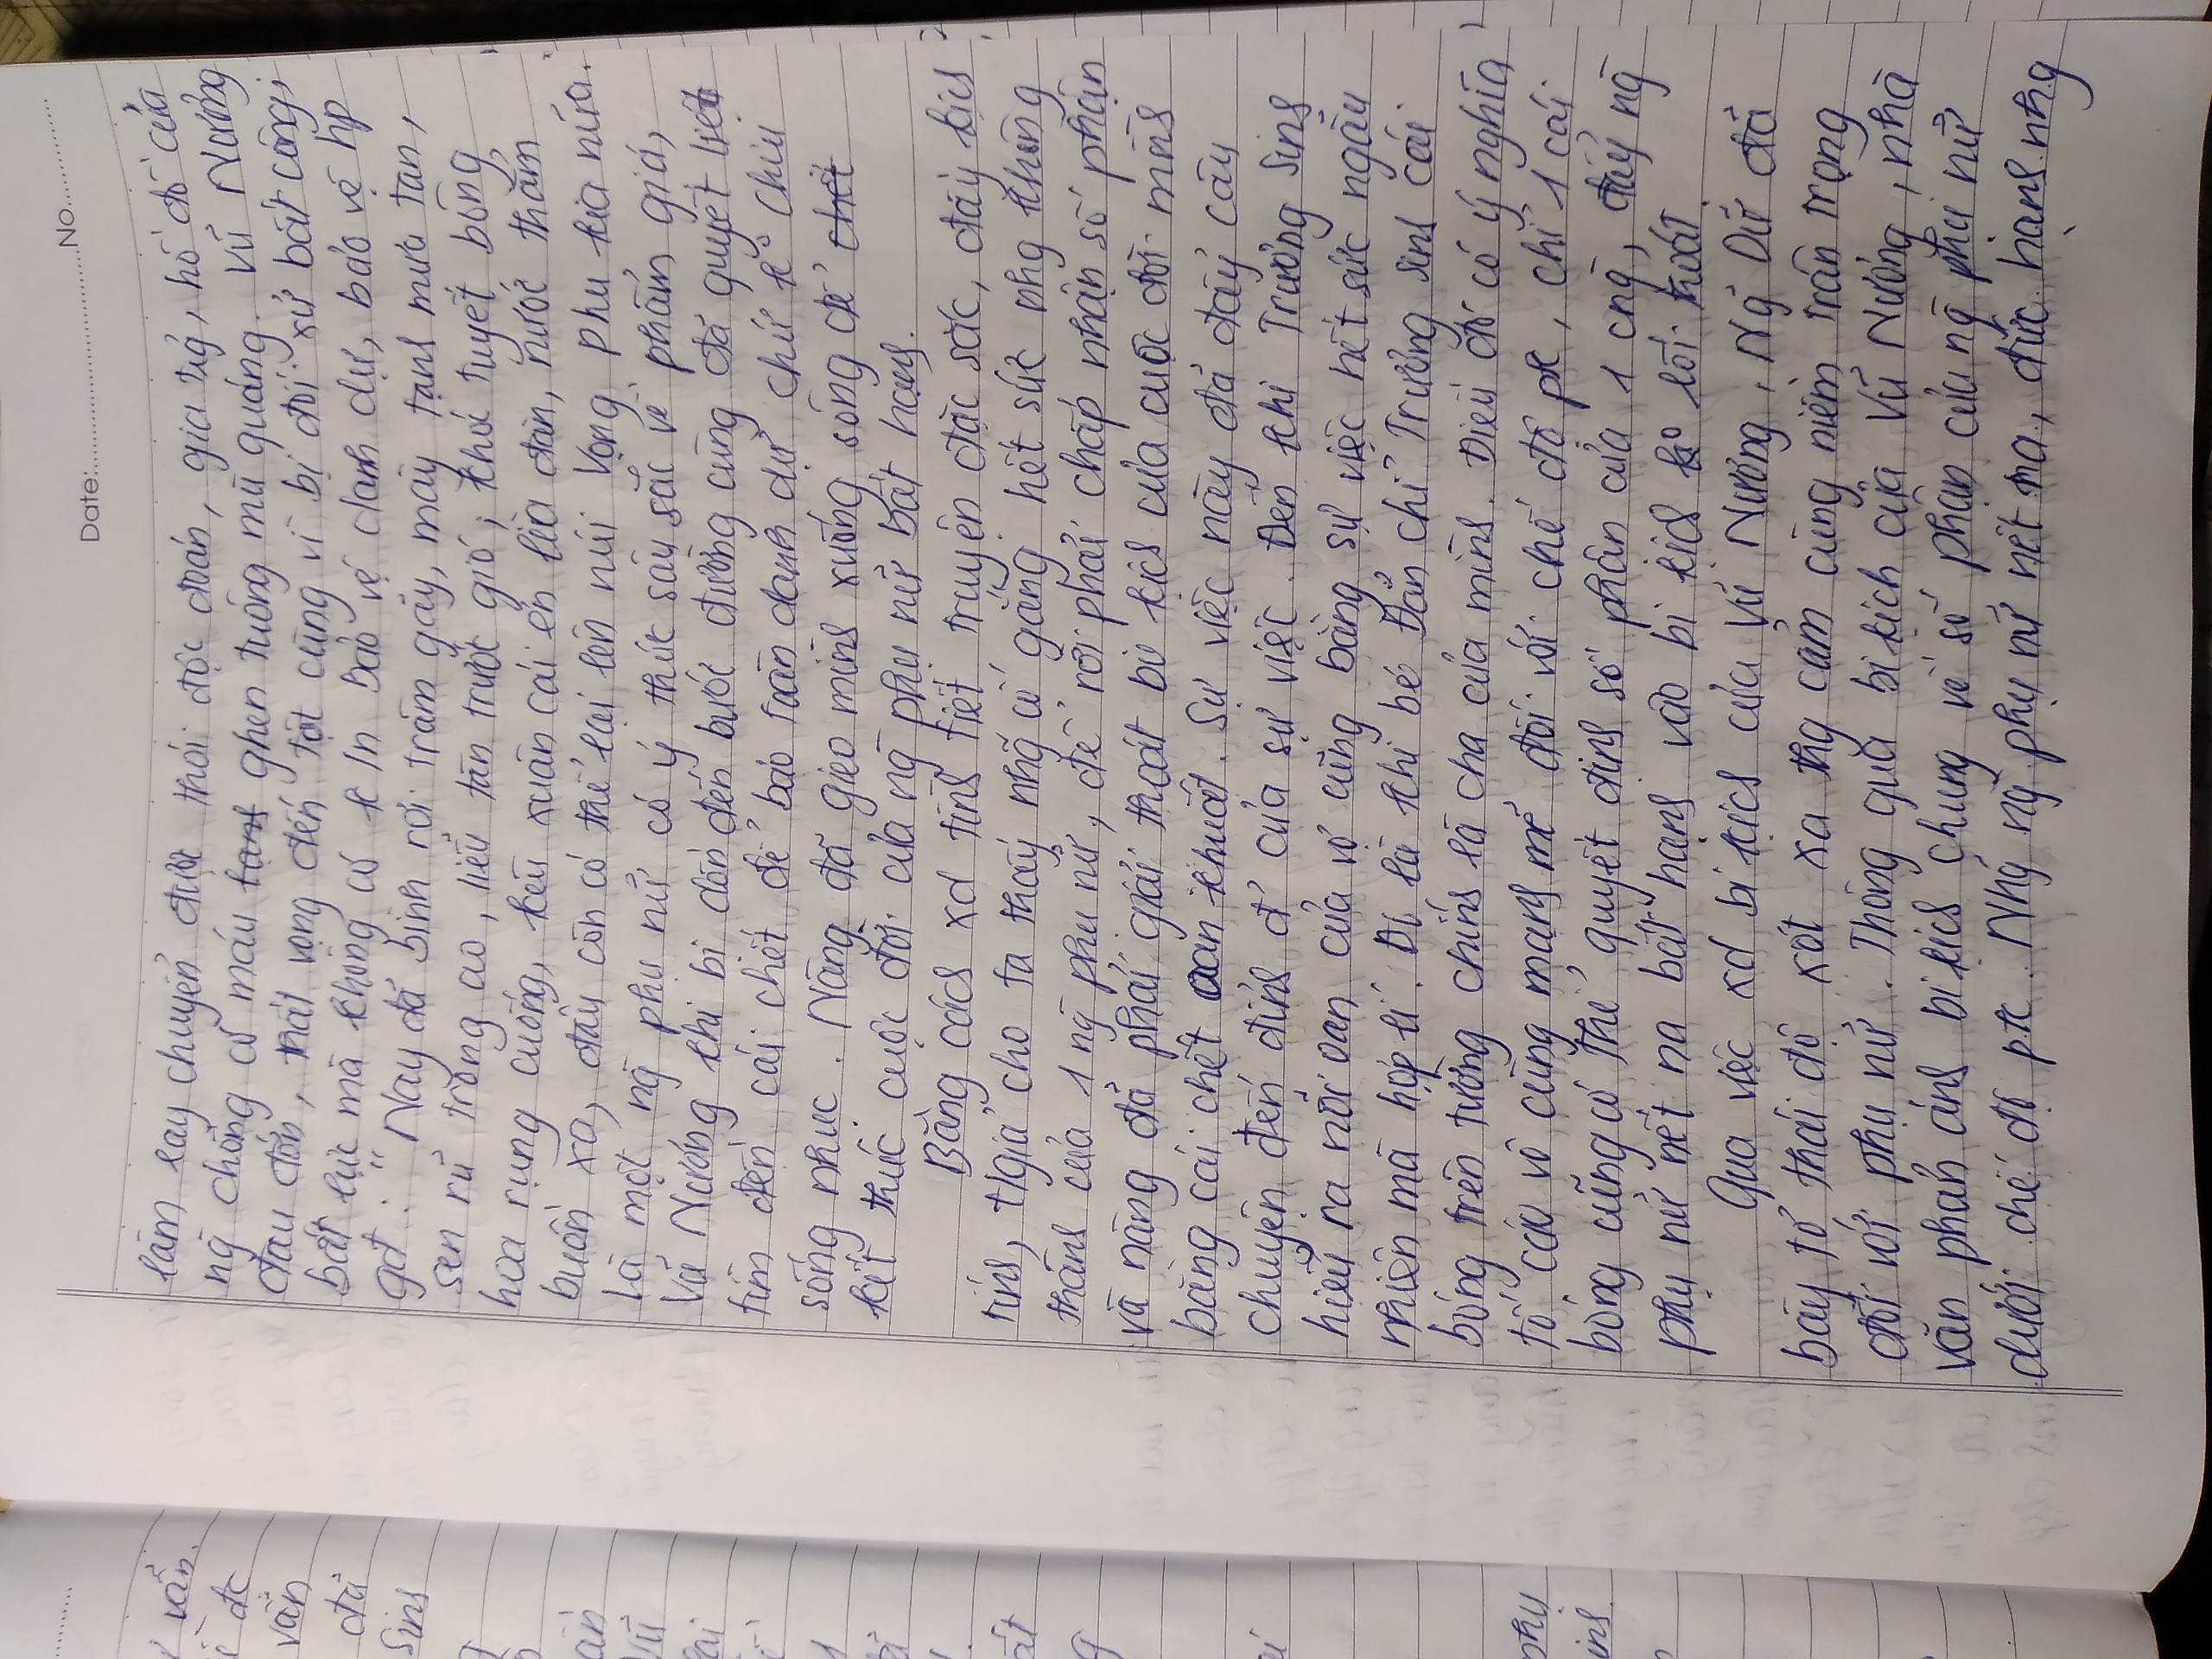 Date:..............................No..............
làm lay chuyển được thói độc đoán, gia trg̉, hồ đồ của
ng̀ chồng có máu ghen tuông mù quáng. Vũ Nương
đau đớn, thất vọng đến tột cùng vì bị đối xử bất công,
bất lực mà không có k/n bảo vệ danh dự, bảo vệ hp
gđ: "Nay đã bình rơi trâm gãy, mây tạnh mưa tan,
sen rũ trong ao, liễu tàn trước gió, khóc tuyết bông
hoa rụng cuống, kêu xuân cái én lìa đàn, nước thẳm
buồm xa, đâu còn có thể lại lên núi Vọng Phu kia nữa.
Là một ng̀ phụ nữ có ý thức sâu sắc về phẩm giá,
Vũ Nương khi bị dồn đến bước đường cùng đã quyết liệt
tìm đến cái chết để bảo toàn danh dự chứ k° chịu
sống nhục. Nàng đã gieo mình xuống sông để chết
kết thúc cuộc đời của ng̀ phụ nữ bất hạnh.
Bằng cách xd tình tiết truyện đặc sắc, đầy kịch
tính, t/giả cho ta thấy nhg̃ cố gắng hết sức nhg không
thành của 1 ng̀ phụ nữ, để rồi phải chấp nhận số phận
và nàng đã phải giải thoát bi kịch của cuộc đời mình
bằng cái chết oan khuất. Sự việc này đã đẩy câu
chuyện đến đỉnh đ' của sự việc. Đến khi Trương Sinh
hiểu ra nỗi oan của vợ cũng bằng sự việc hết sức ngẫu
nhiên mà hợp lí. Đó là khi bé Đản chỉ Trương Sinh cái
bóng trên tường chính là cha của mình. Điều đó có ý nghĩa
tố cáo vô cùng mạnh mẽ đối với chế độ pk, chỉ 1 cái
bóng cũng có thể quyết định số phận của 1 cng̀, đẩy ng̀
phụ nữ nết na bất hạnh vào bi kịch k° lối thoát.
Qua việc xd bi kịch của Vũ Nương, Ng̃ Dữ đã
bày tỏ thái độ xót xa thg cảm cùng niềm trân trọng
đối với phụ nữ. Thông qua bi kịch của Vũ Nương, nhà
văn phản ánh bi kịch chung về số phận của ng̀ phụ nữ
dưới chế độ pk. Nhg̃ ng̀ phụ nữ nết na, đức hạnh nhg